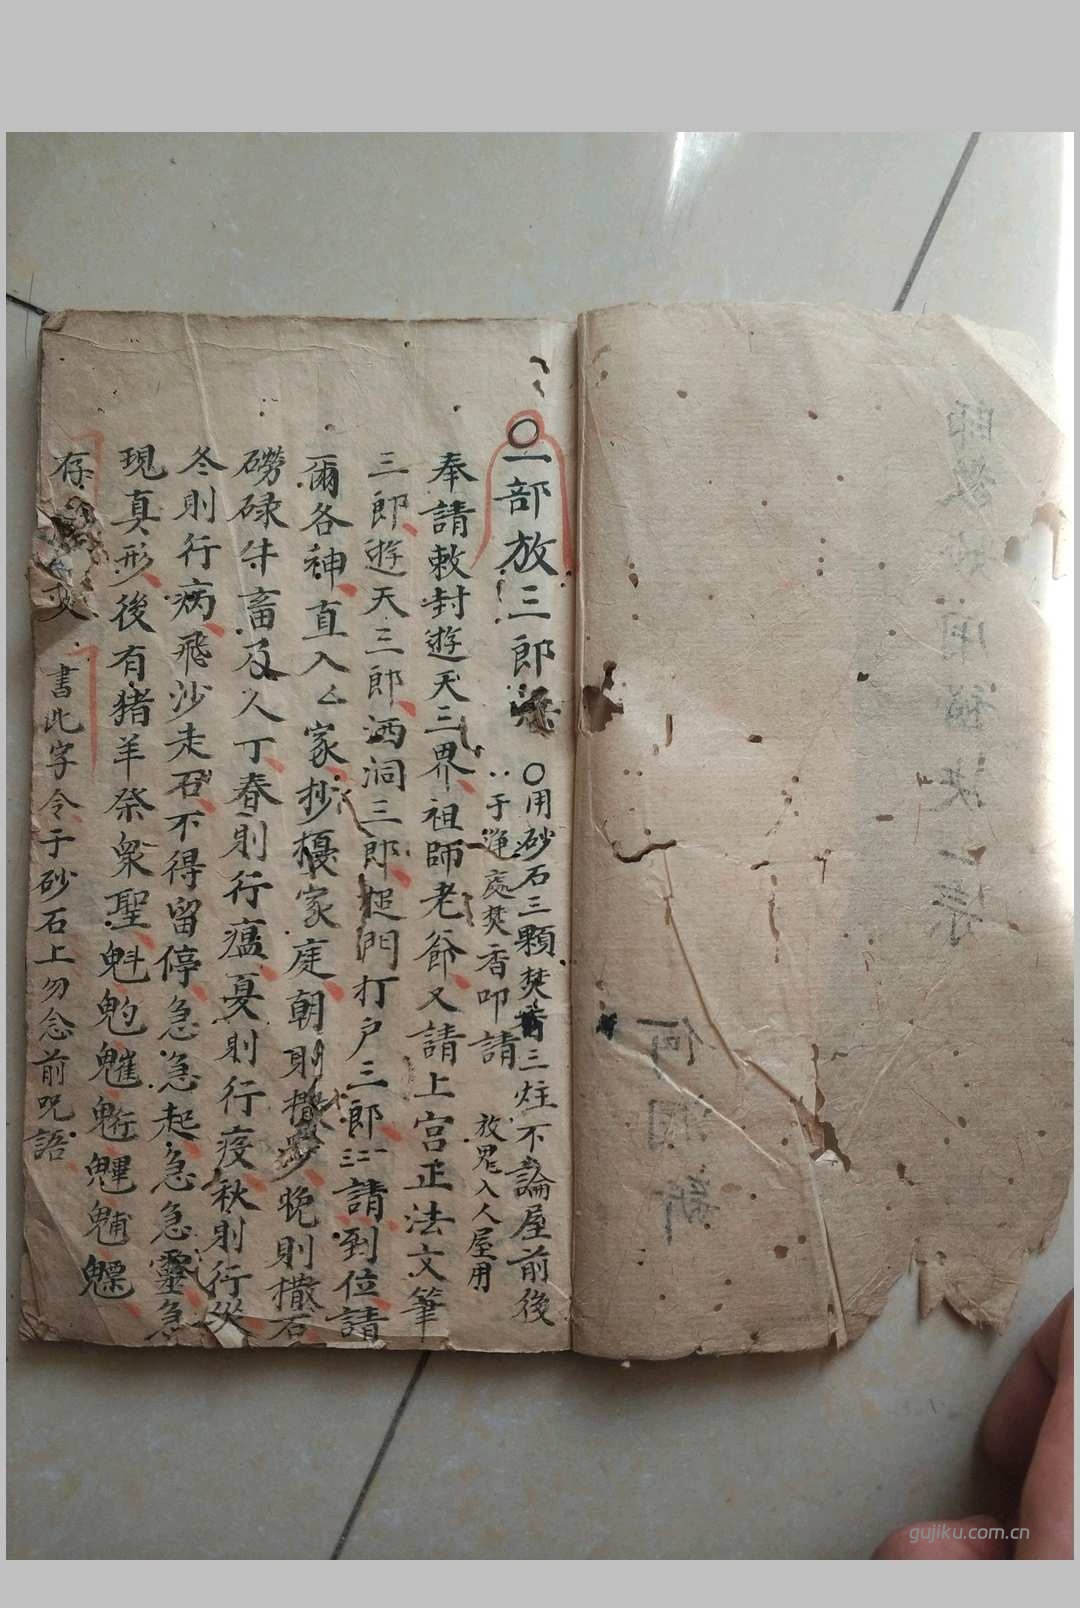 〇一部放三郎
〇用砂石三顆焚香三炷不論屋前後
于淨處焚香叩請
放鬼入人屋用
奉請敕封遊天三界祖師老爺又請上宮正法文筆
三郎遊天三郎洒洞三郎搥門打户三郎三二一請到位請
爾各神直入厶家抄擾家庭朝則撒沙晚則撒石
磱碌牛畜及人丁春則行瘟夏則行疫秋則行災
冬則行病飛沙走石不得留停急急起急急靈急
現真形後有猪羊祭衆聖魁魡魋䰢魓魖魒
存
書此字令于砂石上勿念前咒語
何潤新
gujiku.com.cn